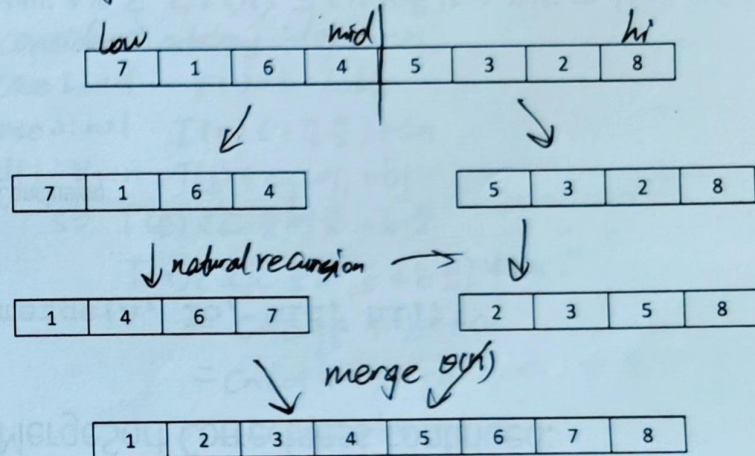 low mid hi
7 1 6 4 5 3 2 8
7 1 6 4 5 3 2 8
natural recursion
1 4 6 7 2 3 5 8
merge θ(n)
1 2 3 4 5 6 7 8